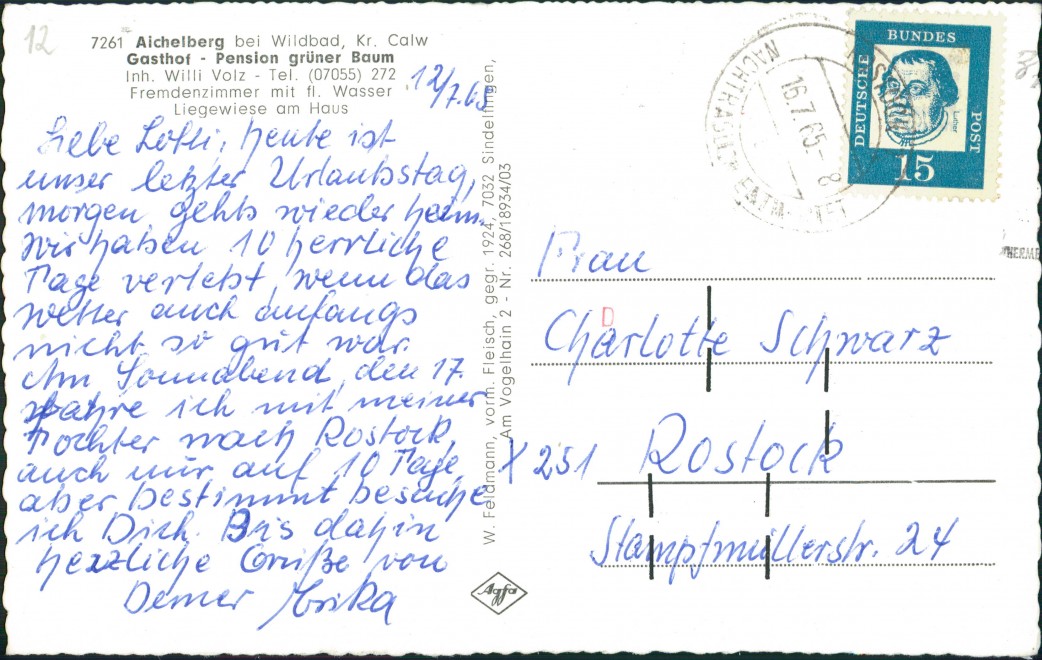 12
7261 Aichelberg bei Wildbad, Kr. Calw
Gasthof - Pension grüner Baum
Inh. Willi Volz - Tel. (07055) 272
Fremdenzimmer mit fl. Wasser
Liegewiese am Haus
12/7.65
Liebe Lotti, heute ist
unser letzter Urlaubstag,
morgen gehts wieder heim.
Wir haben 10 herrliche
Tage verlebt, wenn das
Wetter auch anfangs
nicht so gut war.
Am Sonnabend, den 17.
fahre ich mit meiner
Tochter nach Rostock,
auch nur auf 10 Tage,
aber bestimmt besuche
ich Dich. Bis dahin
herzliche Grüße von
Deiner Erika
W. Feldmann, vorm. Fleisch, gegr. 1924, 7032 Sindelfingen,
Am Vogelhain 2 - Nr. 268/18934/03
Agfa
16.7.65-8
DEUTSCHE
BUNDES
POST
Luther
15
Frau
D
Charlotte Schwarz
X 251 Rostock
Stampfmüllerstr. 24